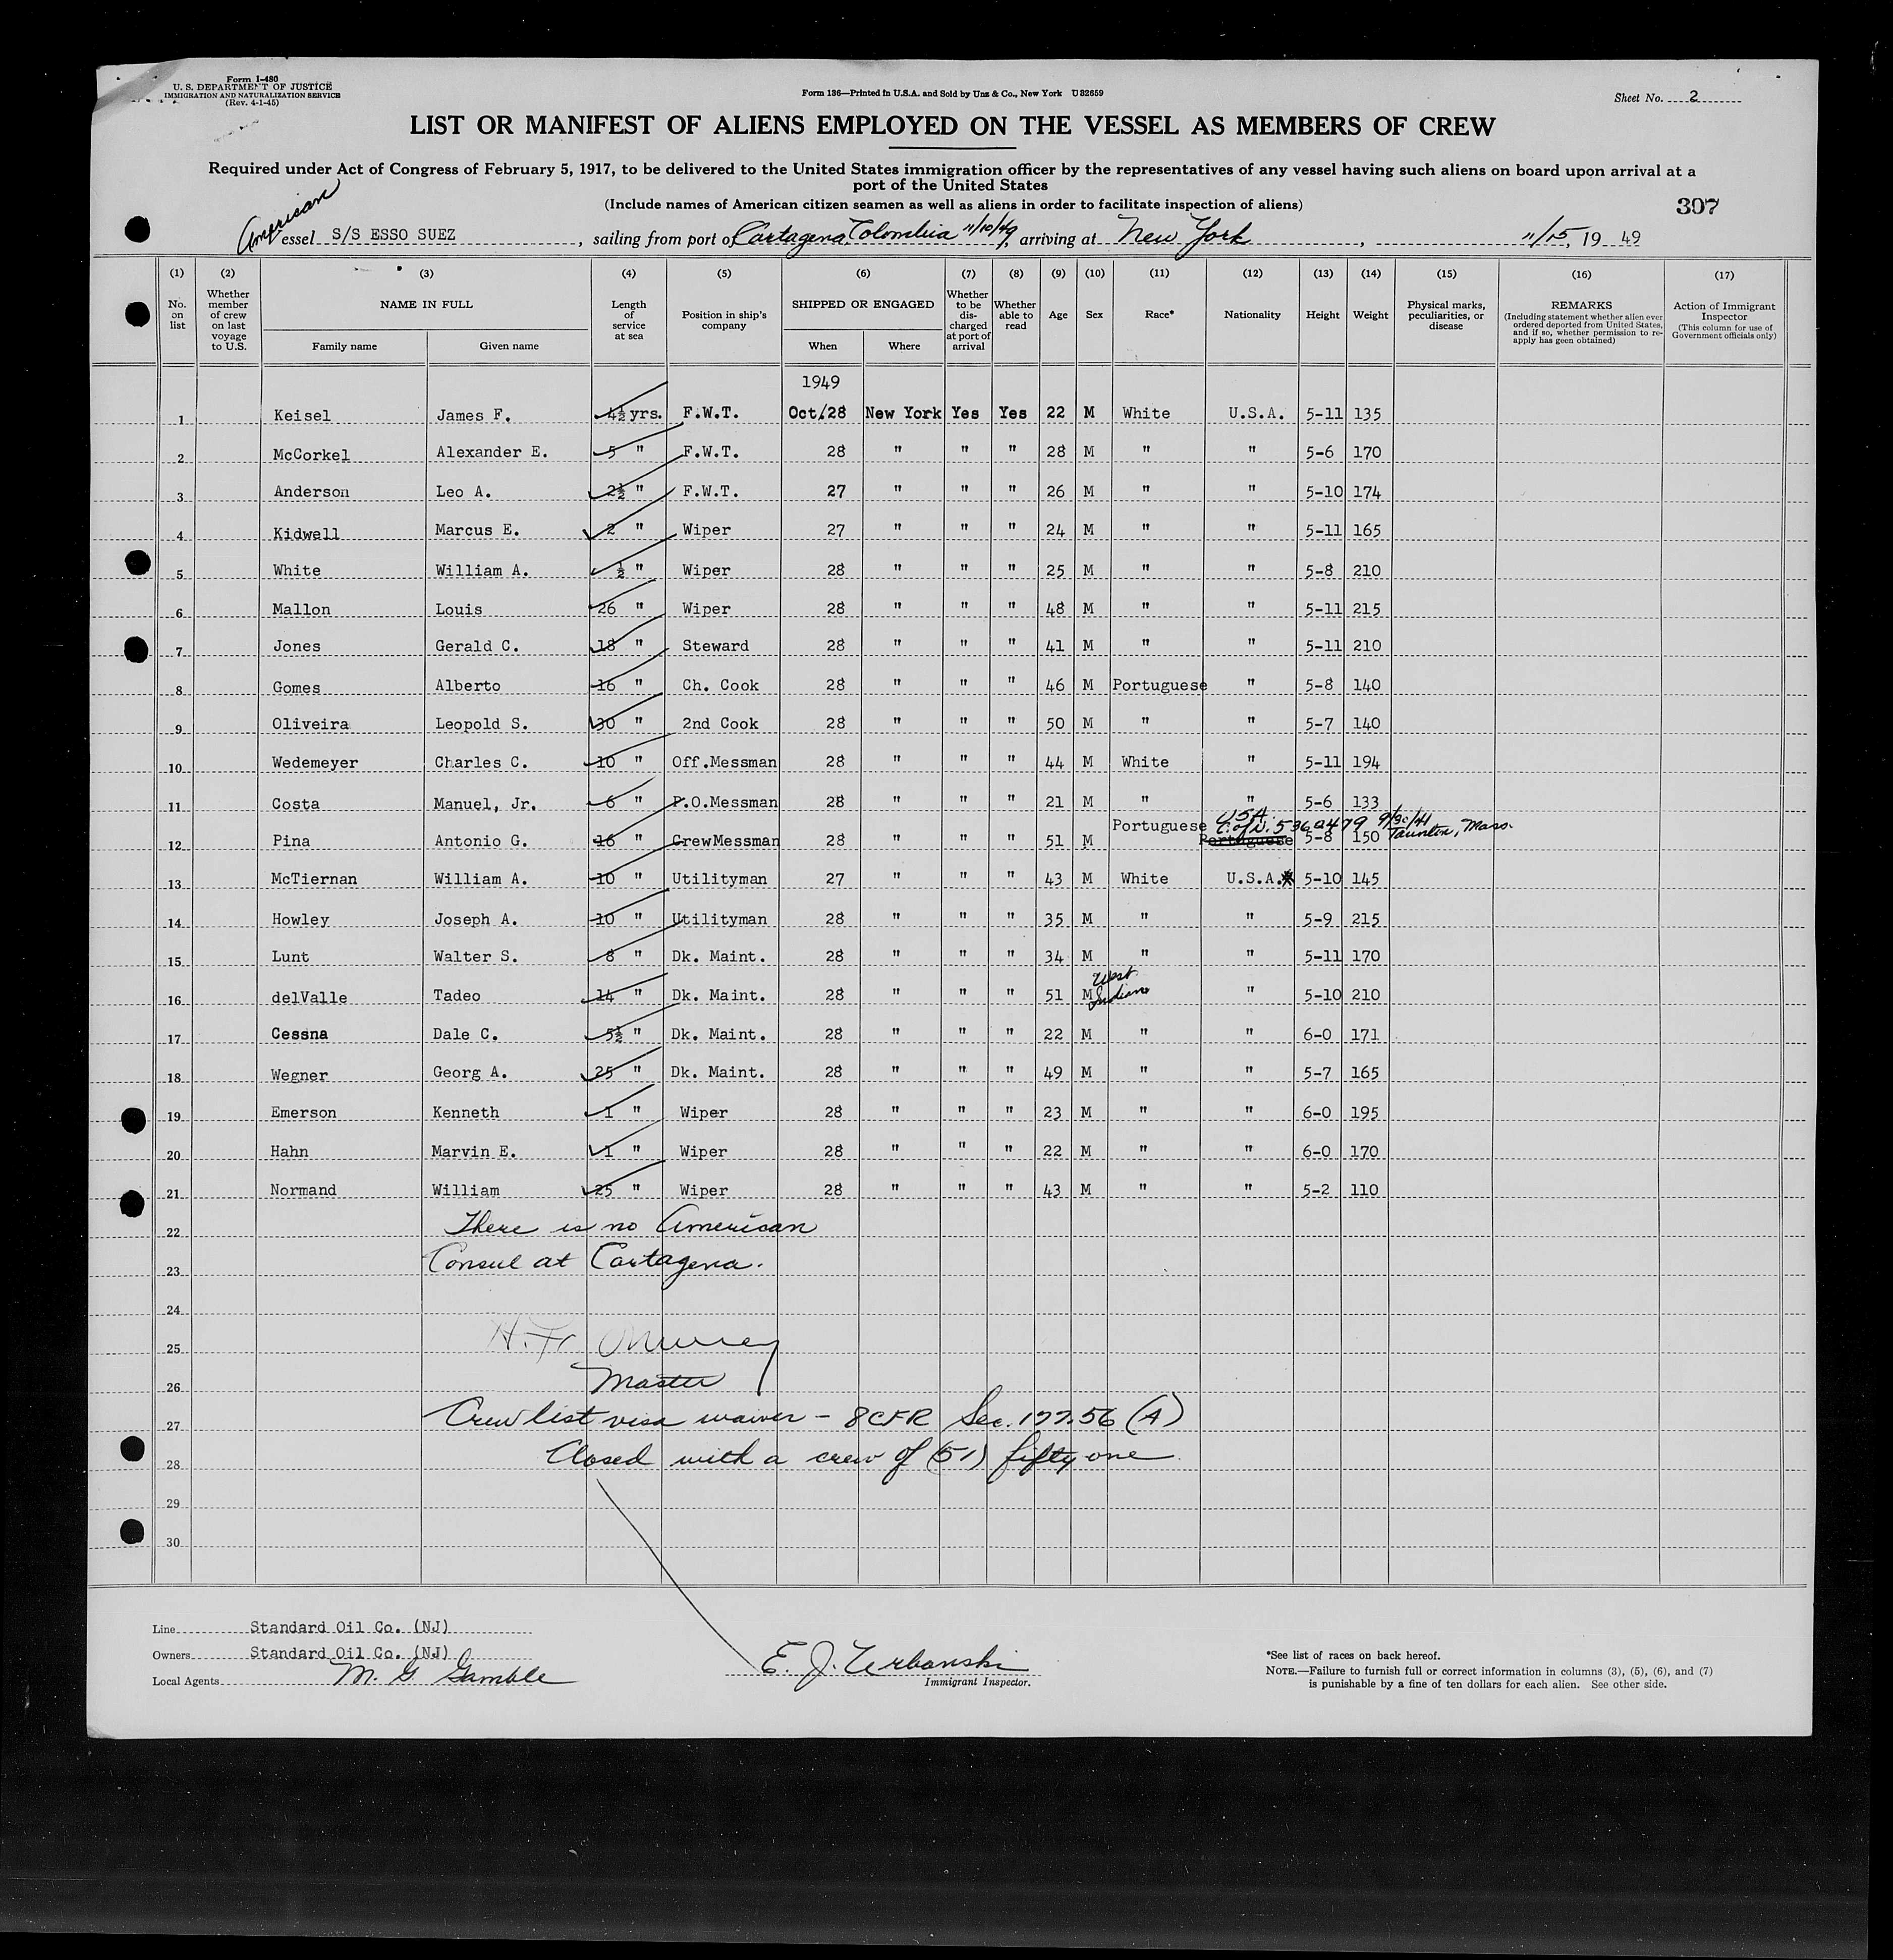 Form I-480
U. S. DEPARTMENT OF JUSTICE
IMMIGRATION AND NATURALIZATION SERVICE
(Rev. 4-1-45)
Form 136—Printed in U.S.A. and Sold by Unz & Co., New York U 32659
Sheet No. 2
LIST OR MANIFEST OF ALIENS EMPLOYED ON THE VESSEL AS MEMBERS OF CREW
Required under Act of Congress of February 5, 1917, to be delivered to the United States immigration officer by the representatives of any vessel having such aliens on board upon arrival at a
port of the United States
(Include names of American citizen seamen as well as aliens in order to facilitate inspection of aliens)
307
American
essel S/S ESSO SUEZ, sailing from port of Cartagena, Colombia 11/10/49, arriving at New York, 11/15, 19 49
(1) (2) (3) (4) (5) (6) (7) (8) (9) (10) (11) (12) (13) (14) (15) (16) (17)
No. on list
Whether member of crew on last voyage to U.S.
NAME IN FULL
Family name
Given name
Length of service at sea
Position in ship's company
SHIPPED OR ENGAGED
When
Where
Whether to be discharged at port of arrival
Whether able to read
Age
Sex
Race*
Nationality
Height
Weight
Physical marks, peculiarities, or disease
REMARKS
(Including statement whether alien ever ordered deported from United States, and if so, whether permission to re-apply has geen obtained)
Action of Immigrant Inspector
(This column for use of Government officials only)
1949
1 Keisel James F. 4½ yrs. F.W.T. Oct/28 New York Yes Yes 22 M White U.S.A. 5-11 135
2 McCorkel Alexander E. 5 " F.W.T. 28 " " " 28 M " " 5-6 170
3 Anderson Leo A. 2½ " F.W.T. 27 " " " 26 M " " 5-10 174
4 Kidwell Marcus E. 2 " Wiper 27 " " " 24 M " " 5-11 165
5 White William A. ½ " Wiper 28 " " " 25 M " " 5-8 210
6 Mallon Louis 26 " Wiper 28 " " " 48 M " " 5-11 215
7 Jones Gerald C. 18 " Steward 28 " " " 41 M " " 5-11 210
8 Gomes Alberto 16 " Ch. Cook 28 " " " 46 M Portuguese " 5-8 140
9 Oliveira Leopold S. 30 " 2nd Cook 28 " " " 50 M " " 5-7 140
10 Wedemeyer Charles C. 10 " Off.Messman 28 " " " 44 M White " 5-11 194
11 Costa Manuel, Jr. 6 " P.O.Messman 28 " " " 21 M " " 5-6 133
USA
C. of N. 5360479 9/30/41
Taunton, Mass.
12 Pina Antonio G. 16 " CrewMessman 28 " " " 51 M Portuguese Portuguese 5-8 150
13 McTiernan William A. 10 " Utilityman 27 " " " 43 M White U.S.A. 5-10 145
14 Howley Joseph A. 10 " Utilityman 28 " " " 35 M " " 5-9 215
15 Lunt Walter S. 8 " Dk. Maint. 28 " " " 34 M " " 5-11 170
16 delValle Tadeo 14 " Dk. Maint. 28 " " " 51 M West Indian " 5-10 210
17 Cessna Dale C. 5½ " Dk. Maint. 28 " " " 22 M " " 6-0 171
18 Wegner Georg A. 25 " Dk. Maint. 28 " " " 49 M " " 5-7 165
19 Emerson Kenneth 1 " Wiper 28 " " " 23 M " " 6-0 195
20 Hahn Marvin E. 1 " Wiper 28 " " " 22 M " " 6-0 170
21 Normand William 25 " Wiper 28 " " " 43 M " " 5-2 110
22 There is no American
23 Consul at Cartagena.
24
25
26 Master
27 Crew list visa waiver - 8 CFR Sec. 177.56 (A)
28 Closed with a crew of (51) fifty one
29
30
Line Standard Oil Co. (NJ)
Owners Standard Oil Co. (NJ)
Local Agents M. G. Gamble
E. J. Urbanski
Immigrant Inspector.
*See list of races on back hereof.
NOTE.—Failure to furnish full or correct information in columns (3), (5), (6), and (7)
is punishable by a fine of ten dollars for each alien. See other side.